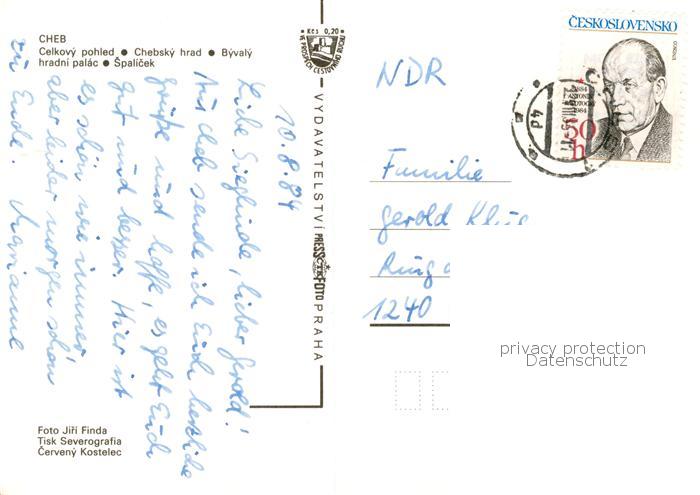 CHEB
Celkový pohled ● Chebský hrad ● Bývalý
hradní palác ● Špalíček
Kčs 0,20
VE PROSPĚCH CESTOVNÍHO RUCHU
10.8.84
Liebe Sieglinde, lieber Gerold!
Aus Cheb sende ich Euch herzliche
Grüße und hoffe, es geht Euch
gut und besser. Hier ist
es schön wie immer,
aber leider morgen schon
zu Ende.
Marianne
VYDAVATELSTVÍ PRESSFOTO PRAHA
Foto Jiří Finda
Tisk Severografia
Červený Kostelec
ČESKOSLOVENSKO
1884
ANTONÍN
ZÁPOTOCKÝ
1984
50
h
NDR
Familie
Gerold
1240
privacy protection
Datenschutz